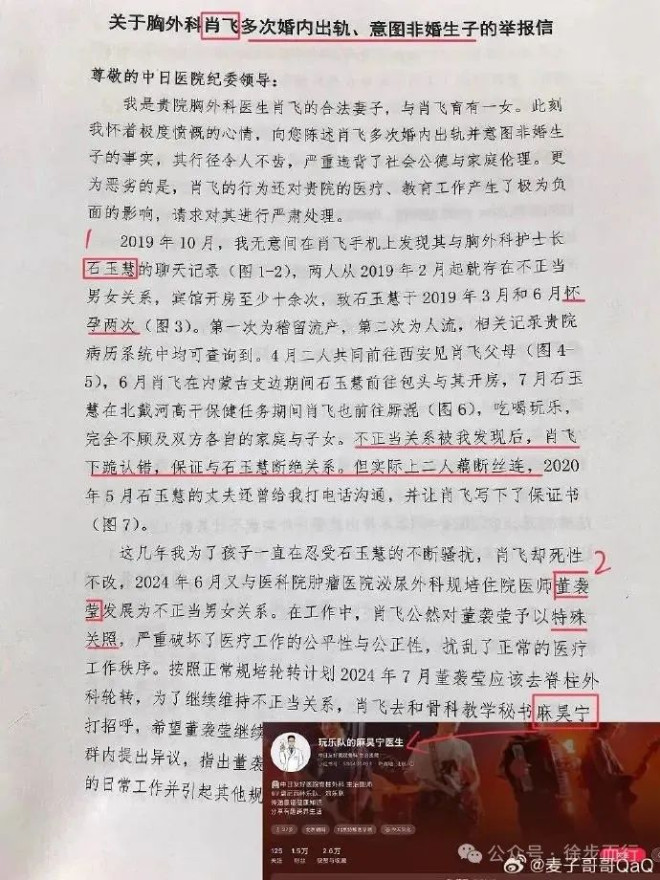 关于胸外科肖飞多次婚内出轨、意图非婚生子的举报信
尊敬的中日医院纪委领导：
我是贵院胸外科医生肖飞的合法妻子，与肖飞育有一女。此刻
我怀着极度愤慨的心情，向您陈述肖飞多次婚内出轨并意图非婚生
子的事实，其行径令人不齿，严重违背了社会公德与家庭伦理。更
为恶劣的是，肖飞的行为还对贵院的医疗、教育工作产生了极为负
面的影响，请求对其进行严肃处理。
1
2019 年 10 月，我无意间在肖飞手机上发现其与胸外科护士长
石玉慧的聊天记录（图 1-2），两人从 2019 年 2 月起就存在不正当
男女关系，宾馆开房至少十余次，致石玉慧于 2019 年 3 月和 6 月怀
孕两次（图 3）。第一次为稽留流产，第二次为人流，相关记录贵院
病历系统中均可查询到。4 月二人共同前往西安见肖飞父母（图 4-
5），6 月肖飞在内蒙古支边期间石玉慧前往包头与其开房，7 月石玉
慧在北戴河高干保健任务期间肖飞也前往厮混（图 6），吃喝玩乐，
完全不顾及双方各自的家庭与子女。不正当关系被我发现后，肖飞
下跪认错，保证与石玉慧断绝关系。但实际上二人藕断丝连，2020
年 5 月石玉慧的丈夫还曾给我打电话沟通，并让肖飞写下了保证书
（图 7）。
这几年我为了孩子一直在忍受石玉慧的不断骚扰，肖飞却死性
2
不改，2024 年 6 月又与医科院肿瘤医院泌尿外科规培住院医师董袭
莹发展为不正当男女关系。在工作中，肖飞公然对董袭莹予以特殊
关照，严重破坏了医疗工作的公平性与公正性，扰乱了正常的医疗
工作秩序。按照正常规培轮转计划 2024 年 7 月董袭莹应该去脊柱外
科轮转，为了继续维持不正当关系，肖飞去和骨科教学秘书麻昊宁
打招呼，希望董袭莹继续
群内提出异议，指出董袭
的日常工作并引起其他规
玩乐队的麻昊宁医生
125 1.5万 2.6万
公众号 · 徐步而行
@麦子哥哥QaQ